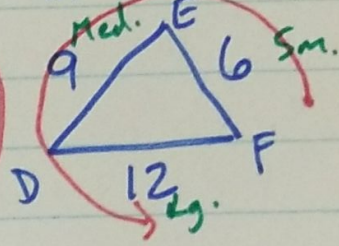 Med. E
9 6 Sm.
D 12 F
Lg.